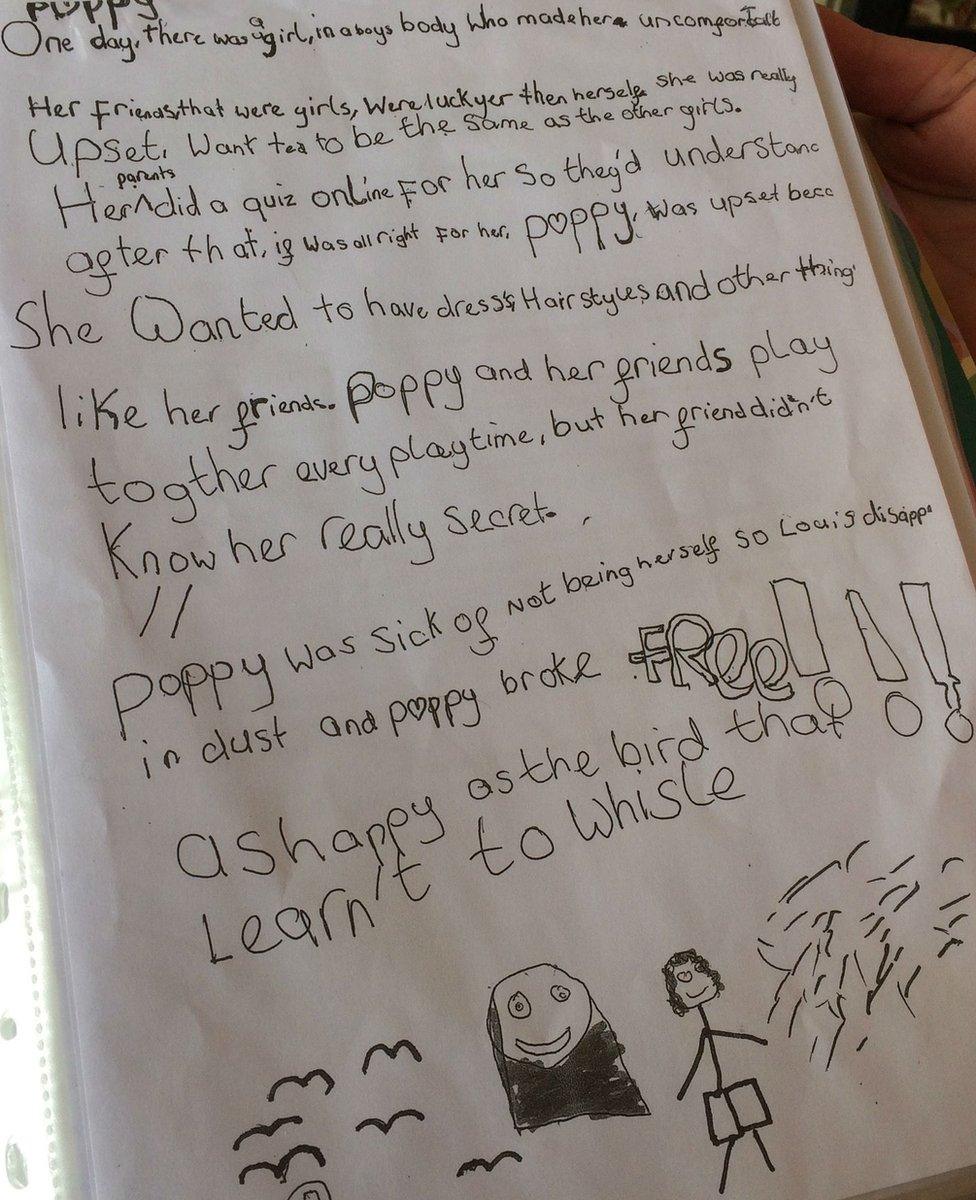 POPPY
One day, there was a girl, in a boys body who made her uncomfortab
Her friends, that were girls, were luckyer then herself. she was really
Upset, Want ted to be the same as the other girls.
Her parents did a quiz online For her so they'd understand
after that, if was all right For her, poppy, was upset beca
She Wanted to have dress's Hair styles and other thing
like her friends. poppy and her friends play
togther every playtime, but her friend didn't
Know her really secret.
//
poppy was sick of Not being herself so Louis disappe
in dust and poppy broke FRee!!!
as happy as the bird that
Learn't to whisle